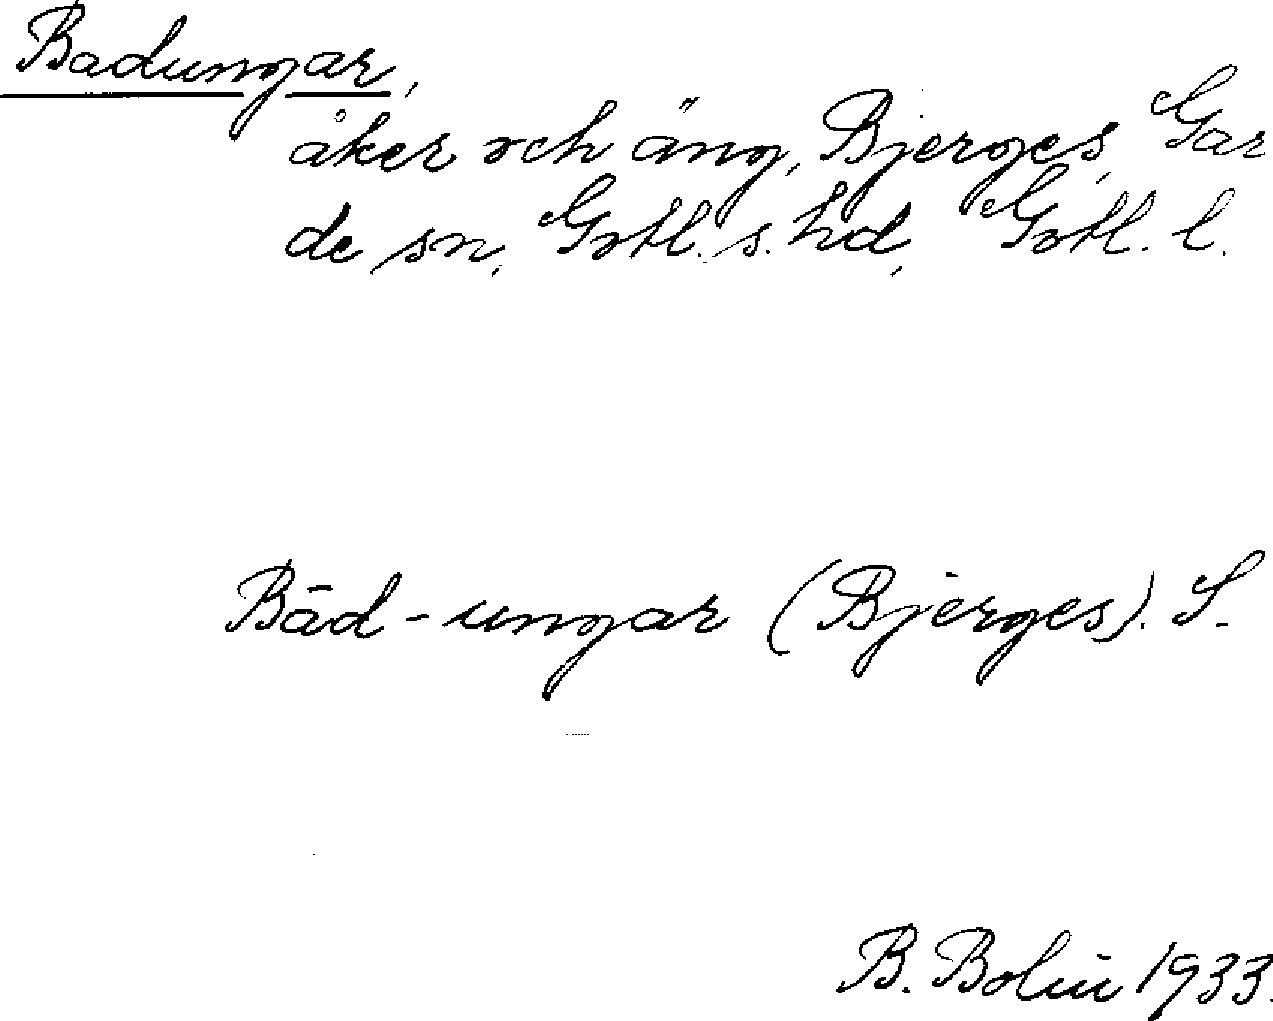 Badungar,
åker och äng, Bjerges, Gar
de sn, Gotl. s. hd, Gotl. l.
Bād-ungar (Bjerges). S.
B. Bolin 1933.